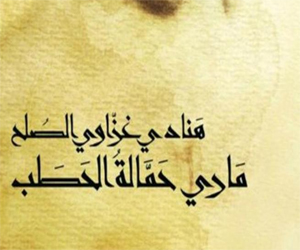 هَنادي غزّاوي الصُلح
مَاري حَمَّالةُ الحَطَب